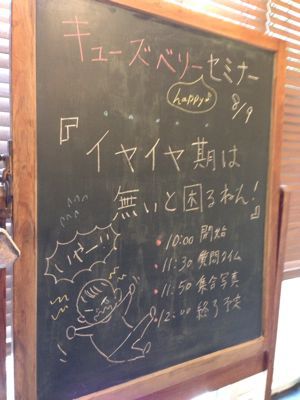 キューズベリーセミナー
happy♪
8/9
『イヤイヤ期は
無いと困るねん!』
いやーー!!
10:00 開始
11:30 質問タイム
11:50 集合写真
12:00 終了予定